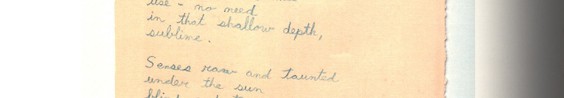 use - no need
in that shallow depth,
sublime.
Senses raw and taunted
under the sun